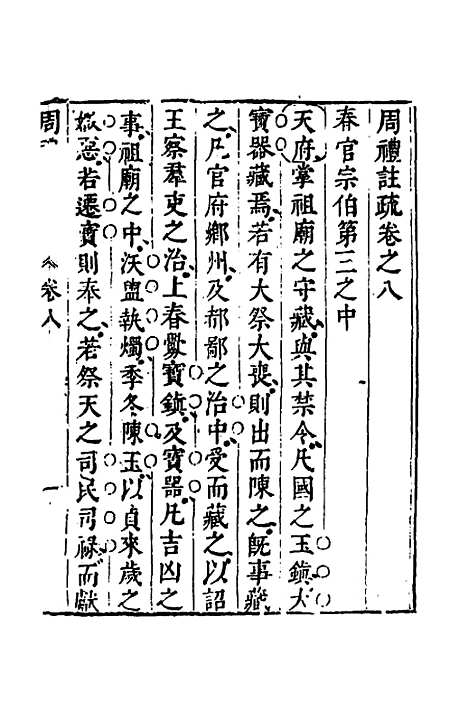 周禮註疏卷之八
春官宗伯第三之中
天府掌祖廟之守藏與其禁令凡國之玉鎮大
寶器藏焉若有大祭大喪則出而陳之既事藏
之凡官府鄉州及都鄙之治中受而藏之以詔
王察羣吏之治上春釁寶鎮及寶器凡吉凶之
事祖廟之中沃盥執燭季冬陳玉以貞來歲之
媺惡若遷寶則奉之若祭天之司民司祿而獻
周 卷八 一